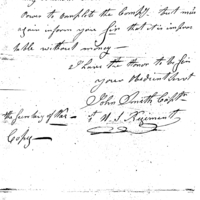 Power to complete the Compy, but must
again inform you Sir that it is impos
sible without money—
I have the Honor to be Sir
your Obedient Servt
John Smith Captn
1 U. S. Regiment
the Secretary of War
Copy—